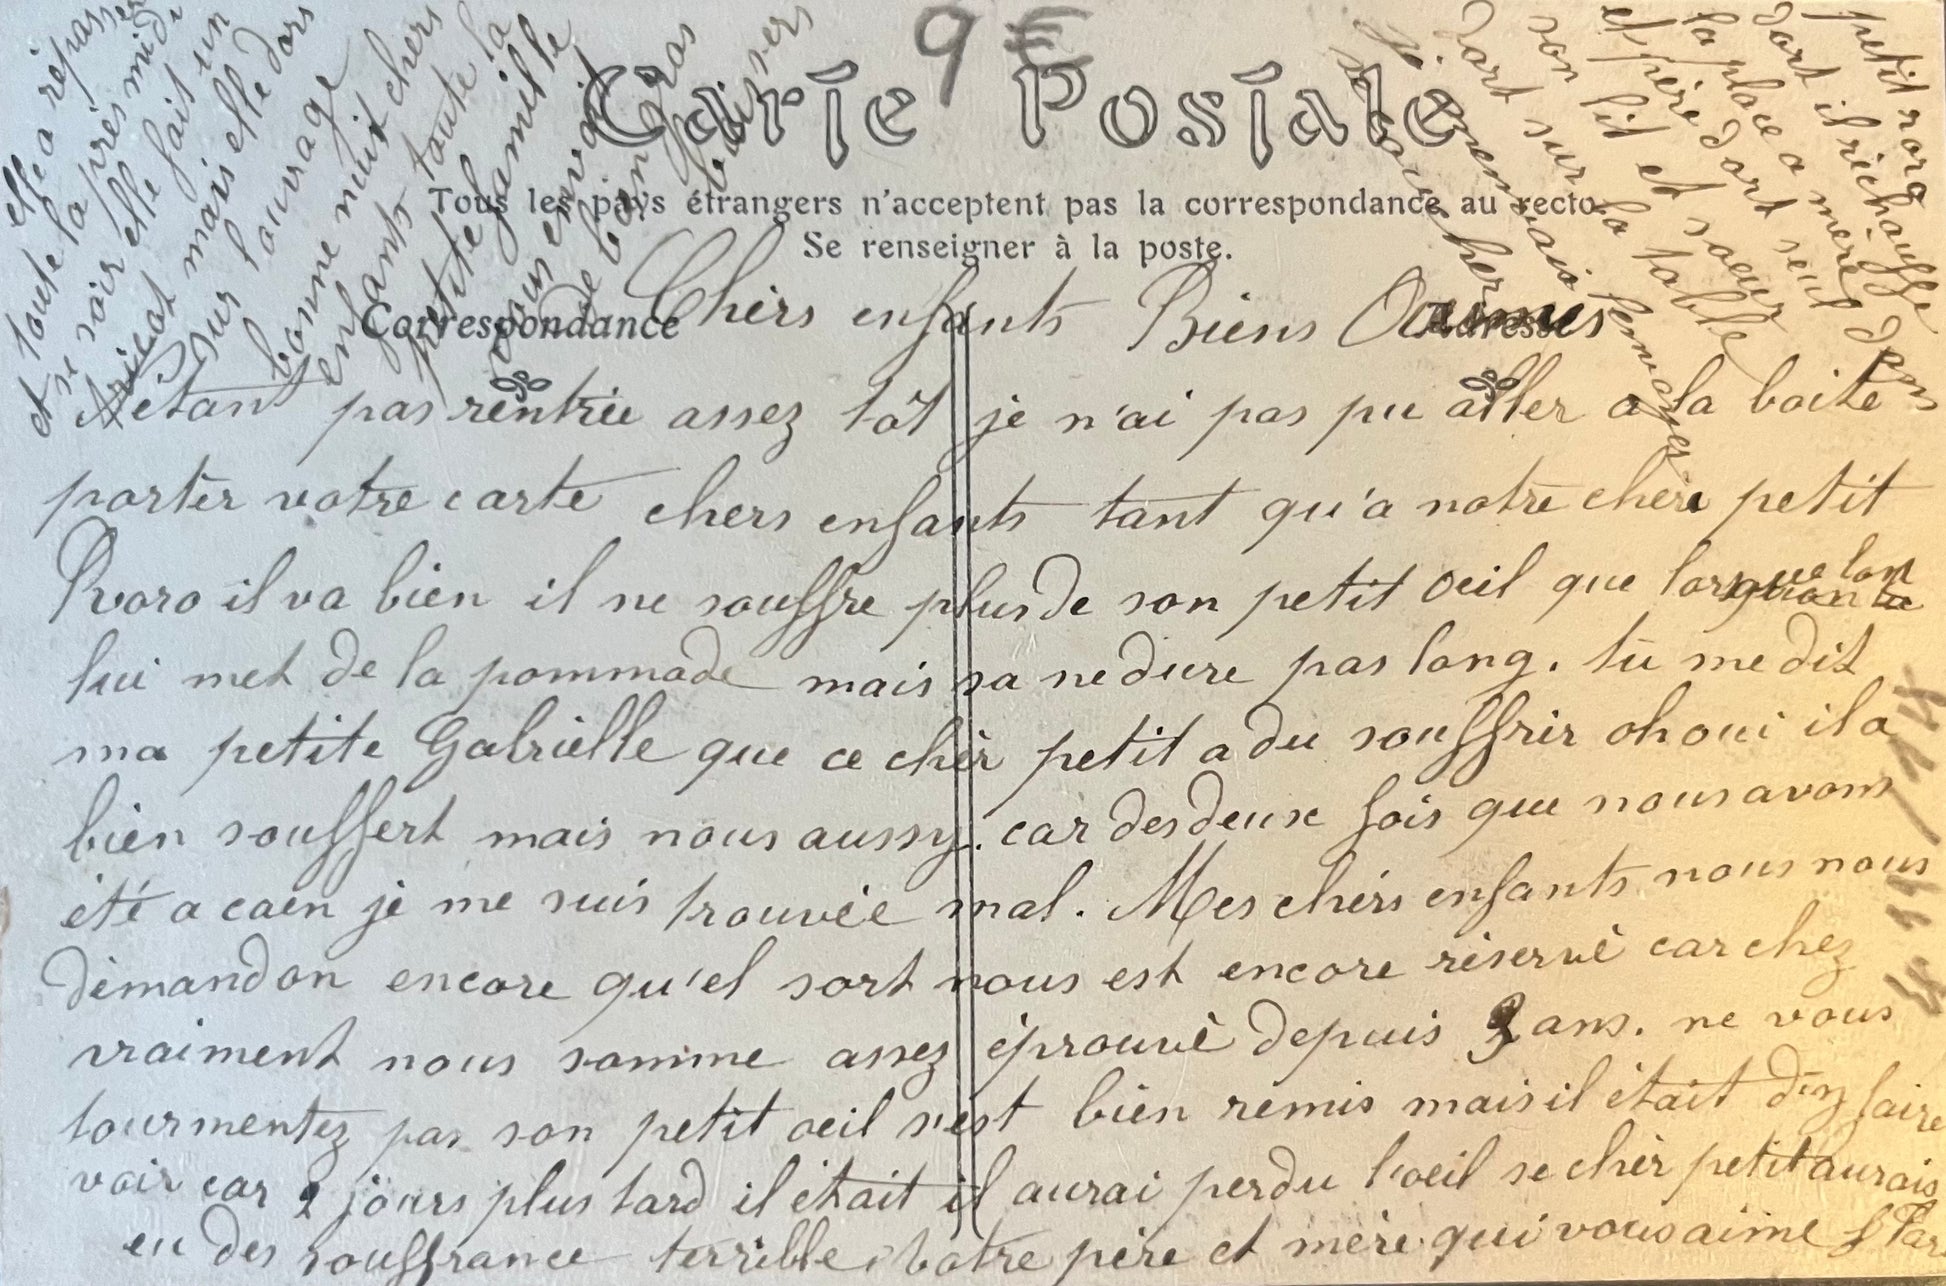 9 €
Carte Postale
Tous les pays étrangers n'acceptent pas la correspondance au recto.
Se renseigner à la poste.
Correspondance
Adresse
Chers enfants Biens
N'étant pas rentrée assez tôt je n'ai pas pu aller a la boite
porter votre carte chers enfants tant qu'a notre chere petit
Roro il va bien il ne souffre plus de son petit oeil que lorsque lon
lui met de la pommade mais sa ne dure pas long. tu me dit
ma petite Gabrielle que ce cher petit a du souffrir oh oui il a
bien souffert mais nous aussy. car des deux fois que nous avons
été a caen je me suis trouvée mal. Mes chers enfants nous nous
demandon encore qu'el sort nous est encore réservé car chez
vraiment nous somme assez éprouvé depuis 3 ans. ne vous
tourmentez pas son petit oeil s'est bien remis mais il était faire
voir car 2 jours plus tard il était il aurai perdu l'oeil se cher petit aurais
eu des souffrance terrible votre père et mère qui vous aime
petit roro
dort il réchauffe
la place a mère
et père dort seul dans
son lit et soeur
dort sur la table
elle a repassé
toute la près midi
et se soir elle fait un
tricot mais elle dors
sur louvrage
bonne nuit chers
enfants toute la
petite famille
vous envoit
de bon gros
baisers